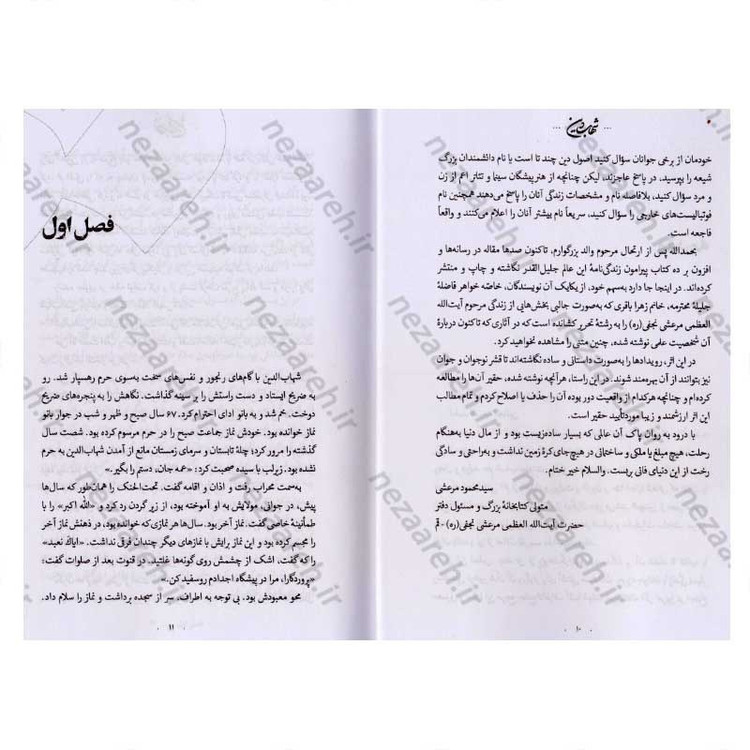 شهاب دین
خودمان از برخی جوانان سؤال کنید اصول دین چند تا است یا نام دانشمندان بزرگ
شیعه را بپرسید، در پاسخ عاجزند، لیکن چنانچه از هنرپیشگان سینما و تئاتر اعم از زن
و مرد سؤال کنید، بلافاصله نام و مشخصات زندگی آنان را پاسخ می‌دهند همچنین نام
فوتبالیست‌های خارجی را سؤال کنید، سریعاً نام بیشتر آنان را اعلام می‌کنند و واقعاً
فاجعه است.
بحمدالله پس از ارتحال مرحوم والد بزرگوارم، تاکنون صدها مقاله در رسانه‌ها و
افزون بر ده کتاب پیرامون زندگی‌نامهٔ این عالم جلیل‌القدر نگاشته و چاپ و منتشر
کرده‌اند. در اینجا جا دارد به‌سهم خود، از یکایک آن نویسندگان، خاصّه خواهر فاضلهٔ
جلیلهٔ محترمه، خانم زهرا باقری که به‌صورت جالبی بخش‌هایی از زندگی مرحوم آیت‌الله
العظمی مرعشی نجفی (ره) را به رشتهٔ تحریر کشانده است که در آثاری که تاکنون دربارهٔ
آن شخصیت علمی نوشته شده، چنین متنی را مشاهده نخواهید کرد.
در این اثر، رویدادها را به‌صورت داستانی و ساده نگاشته‌اند تا قشر نوجوان و جوان
نیز بتوانند از آن بهره‌مند شوند. در این راستا، هرآنچه نوشته شده، حقیر آن‌ها را مطالعه
کرده‌ام و چنانچه هرکدام از واقعیت دور بوده آن را حذف یا اصلاح کردم و تمام مطالب
این اثر ارزشمند و زیبا موردتأیید حقیر است.
با درود به روان پاک آن عالمی که بسیار ساده‌زیست بود و از مال دنیا به‌هنگام
رحلت، هیچ مبلغ یا ملکی و ساختمانی در هیچ‌جای کرهٔ زمین نداشت و به‌راحتی و سادگی
رخت از این دنیای فانی بربست. والسلام خیر ختام.
سیدمحمود مرعشی
متولی کتابخانهٔ بزرگ و مسئول دفتر
حضرت آیت‌الله العظمی مرعشی نجفی (ره) - قم
۱۰
فصل اول
شهاب‌الدین با گام‌های رنجور و نفس‌های سخت به‌سوی حرم رهسپار شد. رو
به ضریح ایستاد و دست راستش را بر سینه گذاشت. نگاهش را به پنجره‌های ضریح
دوخت. خم شد و به بانو ادای احترام کرد. ۶۷ سال صبح و ظهر و شب در جوار بانو
نماز خوانده بود. خودش نماز جماعت صبح را در حرم مرسوم کرده بود. شصت سال
گذشته را مرور کرد؛ چلهٔ تابستان و سرمای زمستان مانع از آمدن شهاب‌الدین به حرم
نشده بود. زیرلب با سیده صحبت کرد: «عمه جان، دستم را بگیر.»
به‌سمت محراب رفت و اذان و اقامه گفت. تحت‌الحنک را همان‌طور که سال‌ها
پیش، در جوانی، مولایش به او آموخته بود، از زیر گردن رد کرد و «الله اکبر» را با
طمأنینهٔ خاصی گفت. نماز آخر بود. سال‌ها هر نمازی که خوانده بود، در ذهنش نماز آخر
را مجسم کرده بود و این نماز برایش با نمازهای دیگر چندان فرق نداشت. «ایاک نعبد»
را که گفت، اشک از چشمش روی گونه‌ها غلتید. در قنوت بعد از صلوات گفت:
«پروردگارا، مرا در پیشگاه اجدادم روسفید کن.»
محو معبودش بود. بی توجه به اطراف، سر از سجده برداشت و نماز را سلام داد.
۱۱
nezaareh.ir
nezaareh.ir
nezaareh.ir
nezaareh.ir
nezaareh.ir
nezaareh.ir